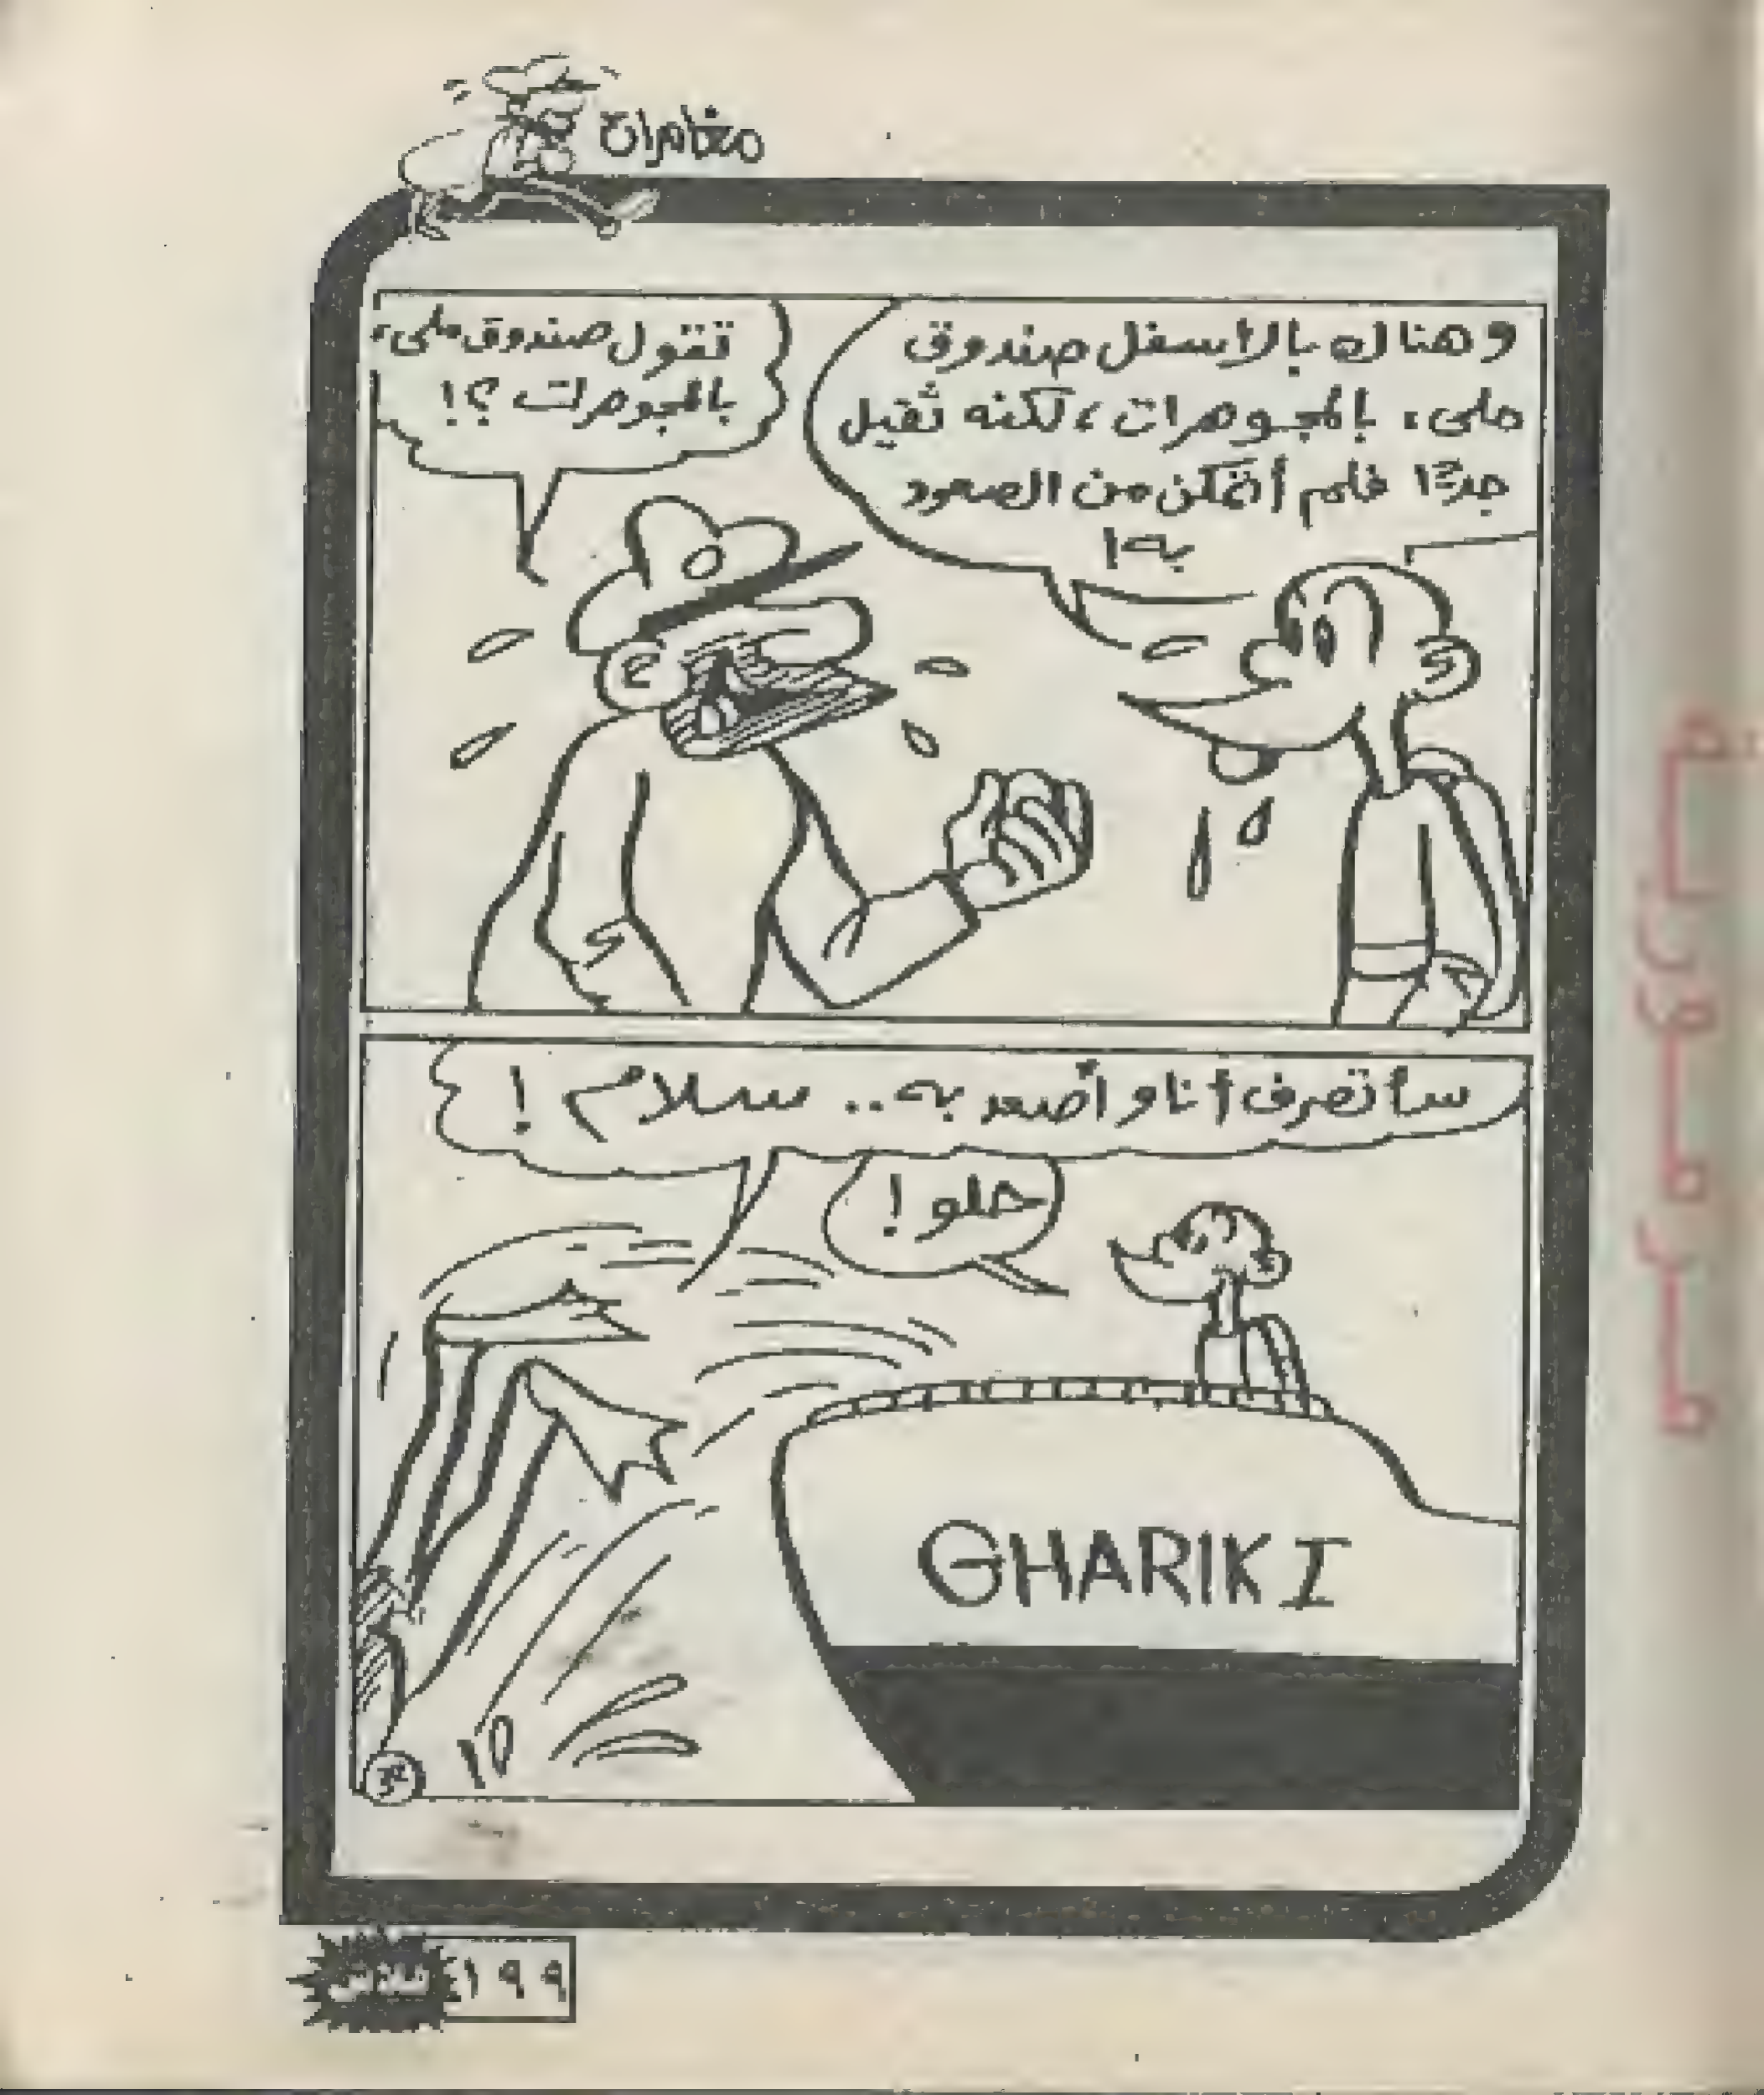 مغامرات
وهناك بالأسفل صندوق
ملىء بالمجوهرات، لكنه ثقيل
جدًا فلم أتمكن من الصعود
به!
تقول صندوق ملىء
بالمجوهرات؟!
سأتصرف أنا وأصعد به.. سلام!
حلو!
GHARIK I
١٥
١٩٩
فلاش